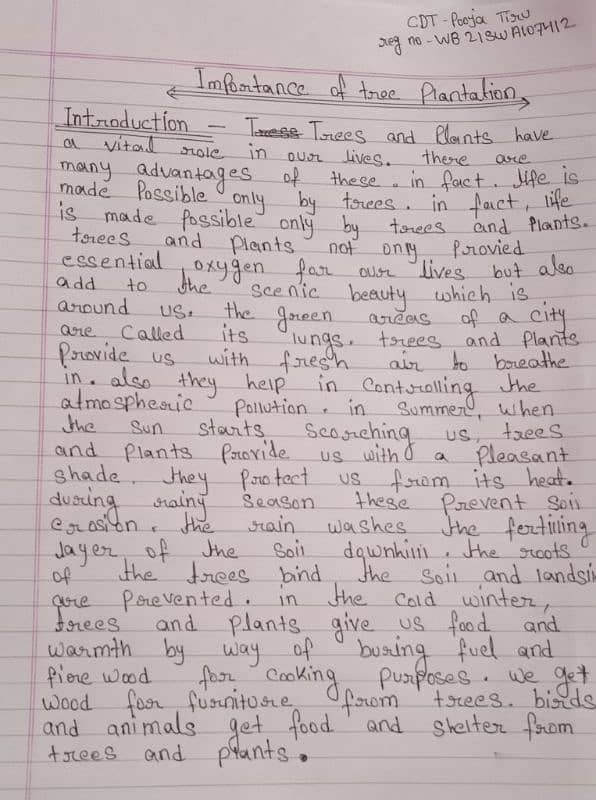 CDT - Pooja Tiru
reg no - WB21SWA107412
Importance of tree Plantation
Introduction - Trees Trees and Plants have
a vital role in our lives. there are
many advantages of these. in fact. life is
made Possible only by trees. in fact, life
is made possible only by trees and Plants.
trees and Plants not only Provied
essential oxygen for our lives but also
add to the scenic beauty which is
around us. the green areas of a city
are Called its lungs. trees and Plants
Provide us with fresh air to breathe
in. also they help in Controlling the
atmospheric Pollution. in Summer, when
the Sun starts Scorching us, trees
and Plants Provide us with a Pleasant
shade. they Protect us from its heat.
during rainy Season these Prevent Soil
erosion. the rain washes the fertiling
layer of the Soil downhill. the roots
of the trees bind the Soil and landsli
are Prevented. in the Cold winter,
trees and Plants give us food and
warmth by way of buring fuel and
fire wood for Cooking Purposes. we get
wood for furniture from trees. birds
and animals get food and shelter from
trees and plants.